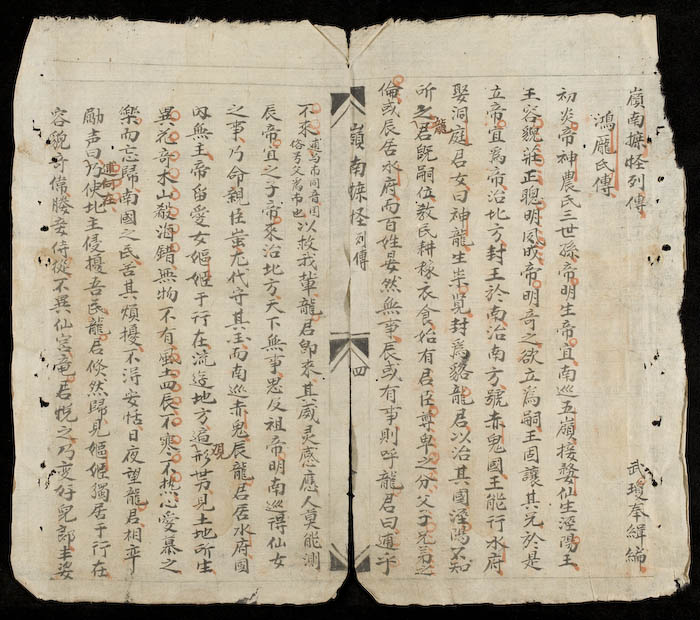 嶺南摭怪列傳
武瓊奉緝編
鴻厖氏傳
初炎帝神農氏三世孫帝明生帝宜南巡五嶺接婺仙生涇陽王
王容貌莊正聰明夙成帝明奇之欲立為嗣王固讓其兄於是
立帝宜爲帝治北方封王於南治南方號赤鬼國王能行水府
娶洞庭君女曰神龍生崇覽封爲貉龍君以治其國涇陽不知
所之龍君旣嗣位教民耕稼衣食始有君臣尊卑之分父子兄弟之
倫或辰居水府而百姓晏然無事辰或有事則呼龍君曰逋乎
嶺南摭怪列傳
四
不來逋与布同音囯俗号父爲布也以救我輩龍君卽來其威灵感應人莫能測
辰帝宜之子帝來治北方天下無事思反祖帝明南巡得仙女
之事乃命親臣蚩尤代守其国而南巡赤鬼辰龍君居水府國
內無主帝留愛女嫗姬于行在流遊地方遍形势現見土地所生
異花奇木山殽海錯無物不有風土四辰不寒不热心愛慕之
樂而忘歸南國之民苦其煩擾不淂安恬日夜望龍君相率
勵声曰逋何在乃使北主侵擾吾民龍君倐然歸見嫗姬獨居于行在
容貌奇偉媵妾侍從不異仙宮竜君悅之乃变好兒郎丰姿